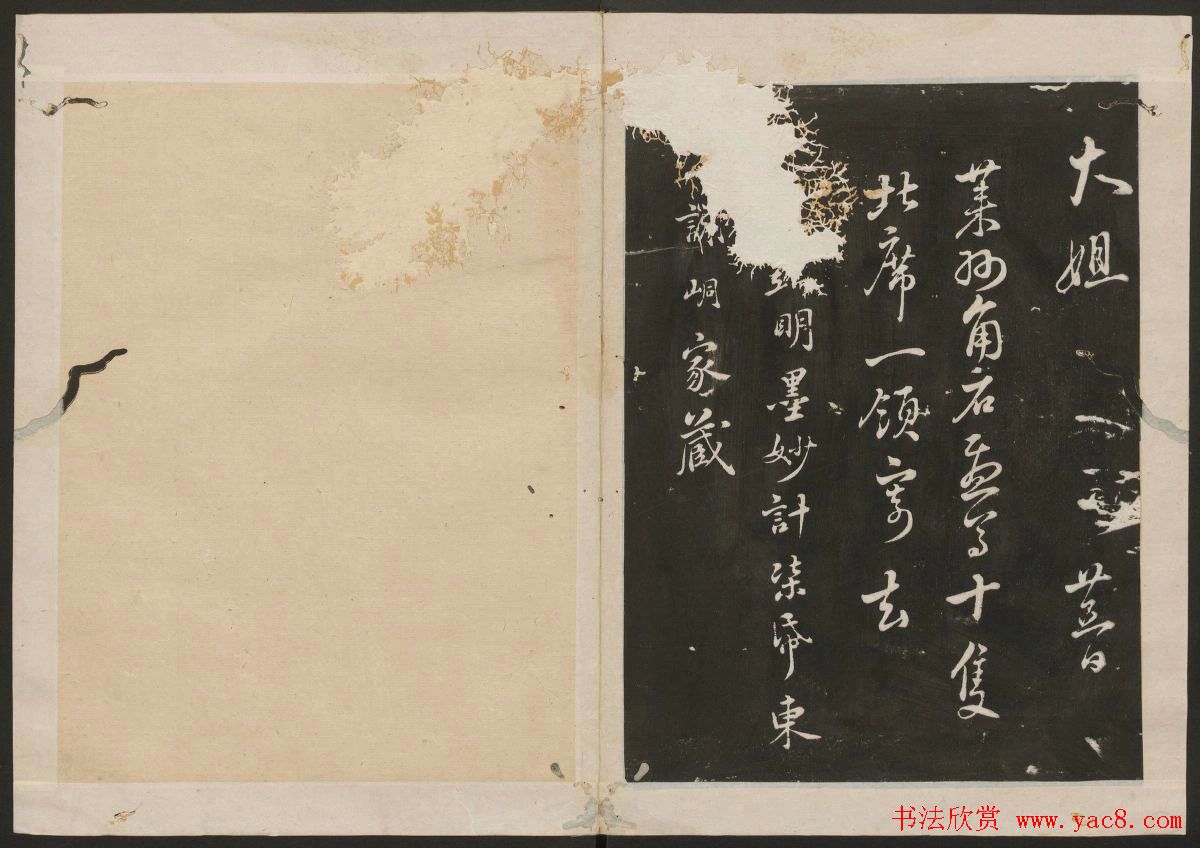 大姐 日
萊州角石等十隻
北席一領寄去
明墨妙計柒帋東
謝峒家藏
书法欣赏 www.yac8.com